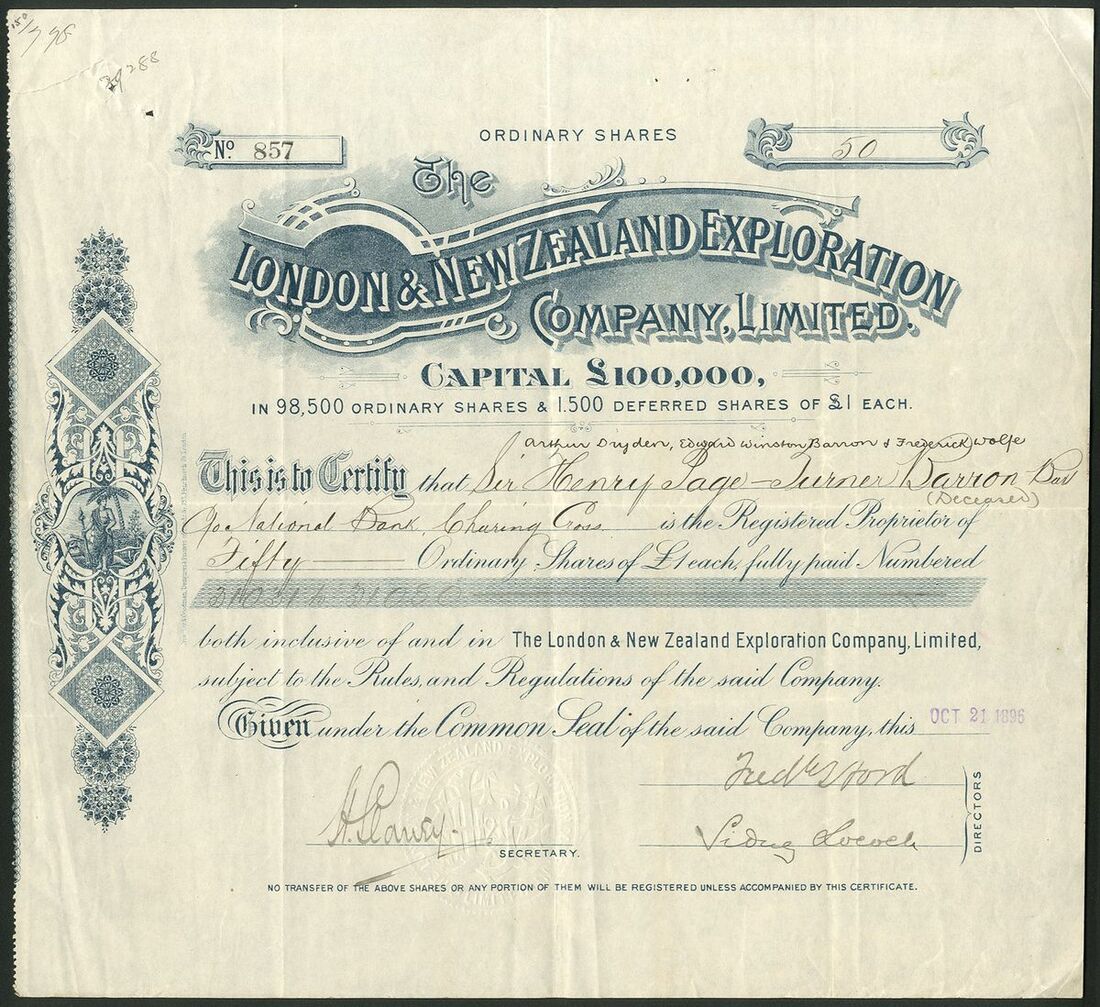 ORDINARY SHARES
No. 857
50
The
LONDON & NEW ZEALAND EXPLORATION
COMPANY, LIMITED.
CAPITAL £100,000,
IN 98,500 ORDINARY SHARES & 1.500 DEFERRED SHARES OF £1 EACH.
Arthur Dryden, Edward Winston Barron & Frederick Wolfe
This is to Certify that Sir Henry Page-Turner Barron
(Deceased)
c/o National Bank, Charing Cross is the Registered Proprietor of
Fifty Ordinary Shares of £1 each, fully paid Numbered
both inclusive of and in The London & New Zealand Exploration Company, Limited,
subject to the Rules, and Regulations of the said Company.
Given under the Common Seal of the said Company, this OCT 21 1896
SECRETARY.
DIRECTORS
NO TRANSFER OF THE ABOVE SHARES OR ANY PORTION OF THEM WILL BE REGISTERED UNLESS ACCOMPANIED BY THIS CERTIFICATE.